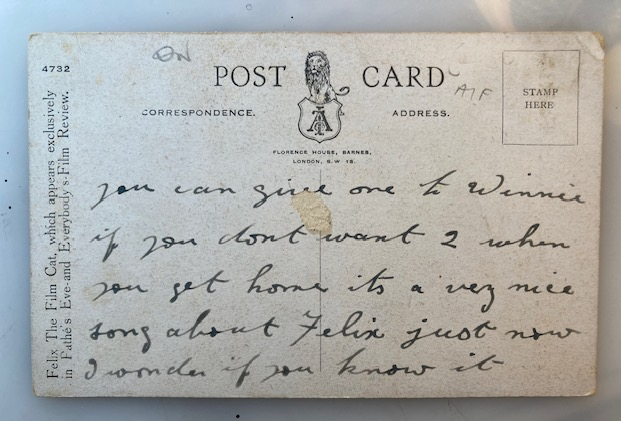 4732
ON
POST CARD
A/F
STAMP
HERE
CORRESPONDENCE.
ADDRESS.
FLORENCE HOUSE, BARNES,
LONDON, S.W 13.
Felix The Film Cat, which appears exclusively
in Pathé's Eve-and Everybody's-Film Review.
you can give one to Winnie
if you dont want 2 when
you get home its a very nice
song about Felix just now
I wonder if you know it